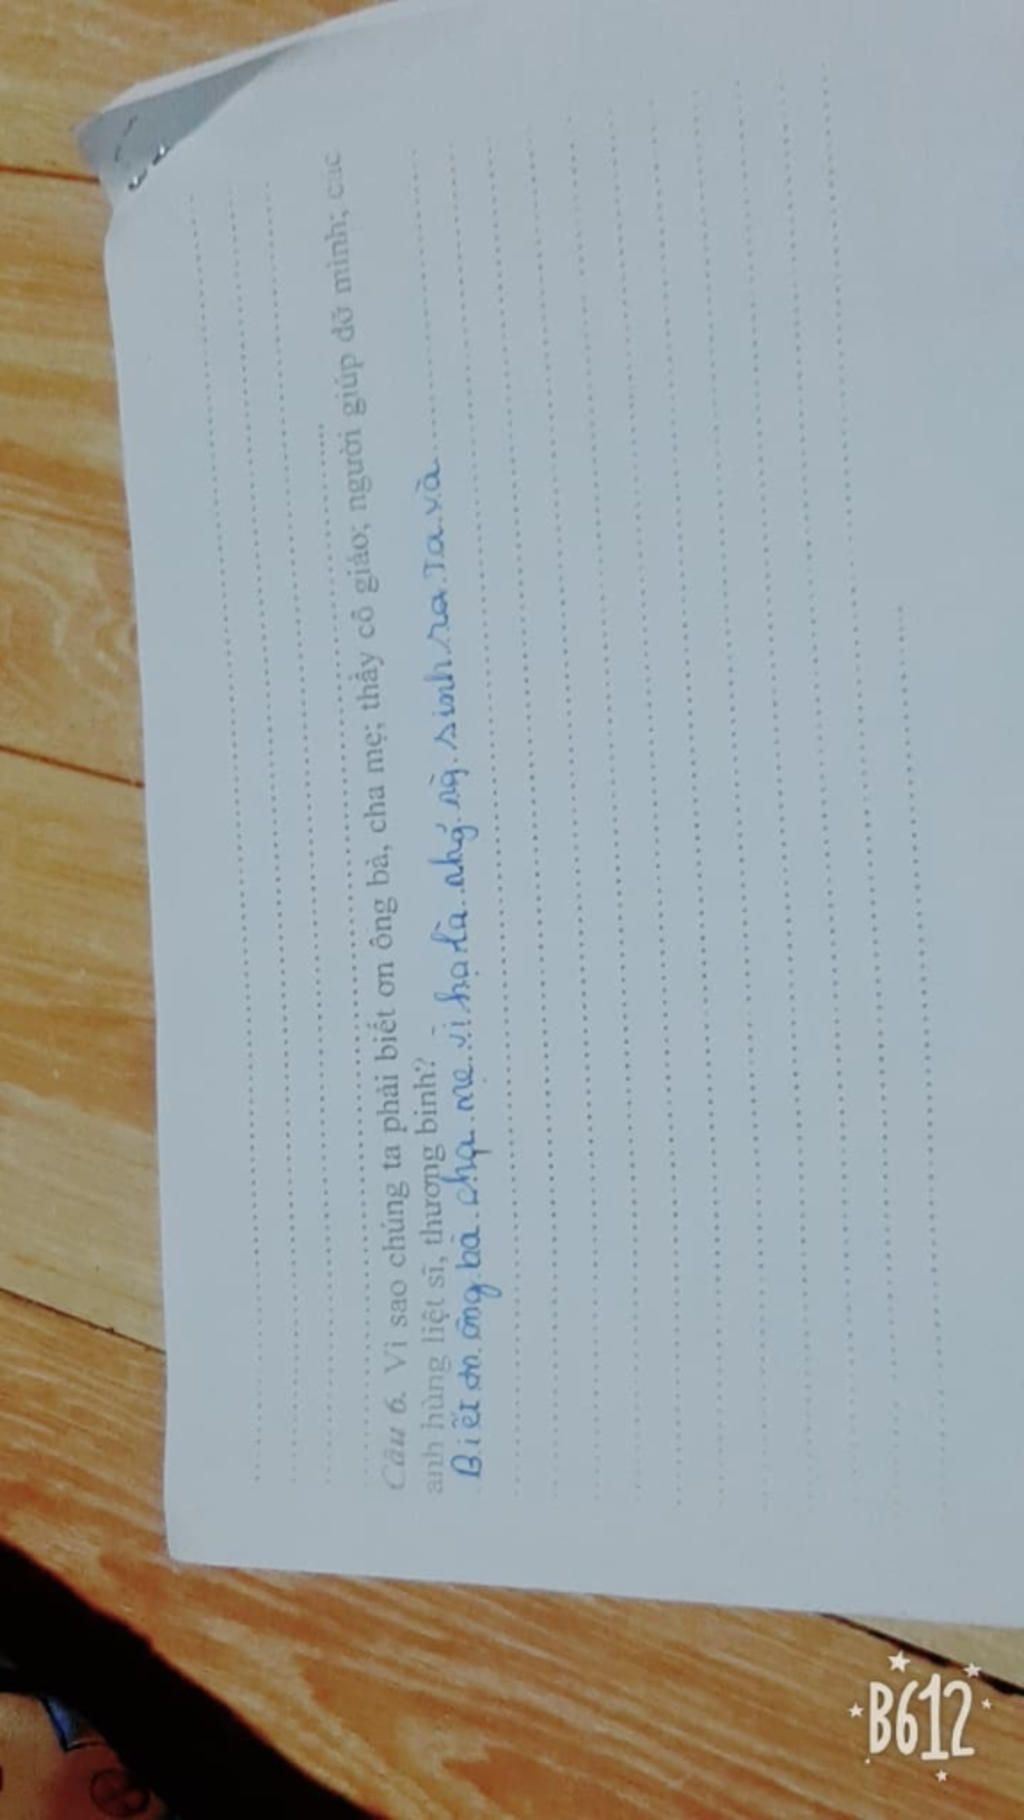 Câu 6. Vì sao chúng ta phải biết ơn ông bà, cha mẹ; thầy cô giáo; người giúp đỡ mình; các
anh hùng liệt sĩ, thương binh?
Biết ơn ông bà cha mẹ vì họ là nhg ng sinh ra Ta và
B612